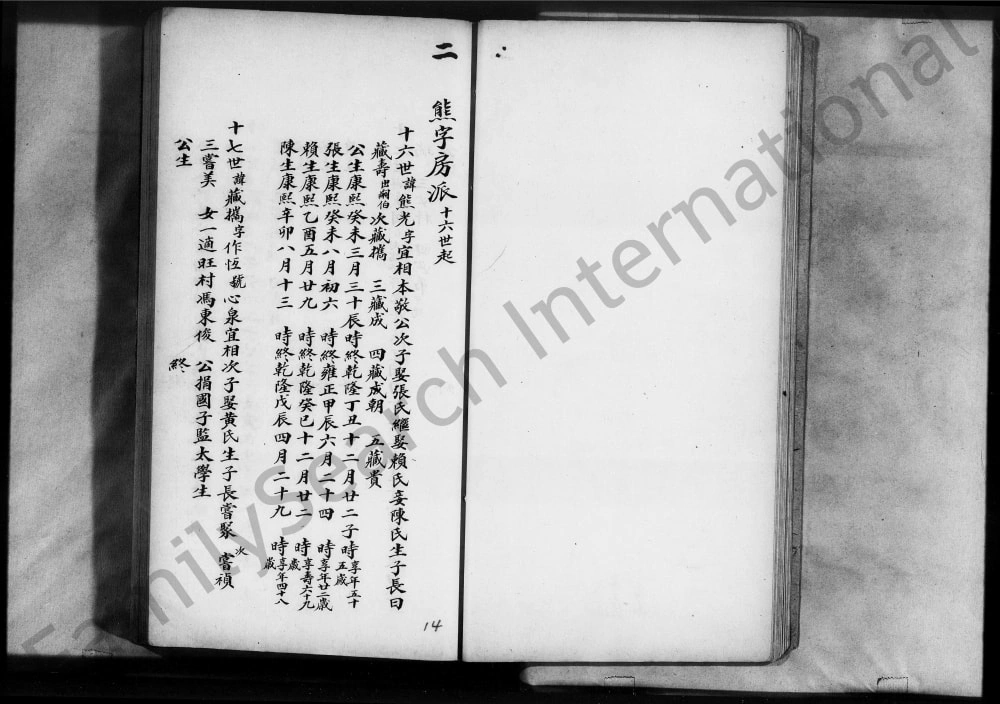 二
熊字房派 十六世起
十六世諱熊光字宜相本敬公次子娶張氏繼娶賴氏妾陳氏生子長曰
藏壽出嗣伯 次藏攜 三藏成 四藏成朝 五藏貴
公生康熙癸未三月三十辰時終乾隆丁丑十二月廿二子時享年五十五歲
張生康熙癸未八月初六 時終雍正甲辰六月二十四 時享年廿二歲
賴生康熙乙酉五月廿九 時終乾隆癸巳十二月廿二 時享壽六十九歲
陳生康熙辛卯八月十三 時終乾隆戊辰四月二十九 時享年四十八歲
十七世諱藏攜字作恆號心泉宜相次子娶黃氏生子長嘗聚 次嘗禎
三嘗美 女一適旺村馮東俊 公捐國子監太學生
公生 終
14
FamilySearch International